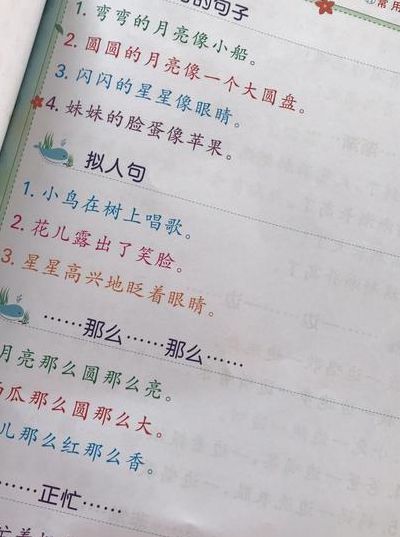 的句子
1. 弯弯的月亮像小船。
2. 圆圆的月亮像一个大圆盘。
3. 闪闪的星星像眼睛。
4. 妹妹的脸蛋像苹果。
拟人句
1. 小鸟在树上唱歌。
2. 花儿露出了笑脸。
3. 星星高兴地眨着眼睛。
……那么……那么……
月亮那么圆那么亮。
西瓜那么圆那么大。
儿那么红那么香。
……正忙……
常用